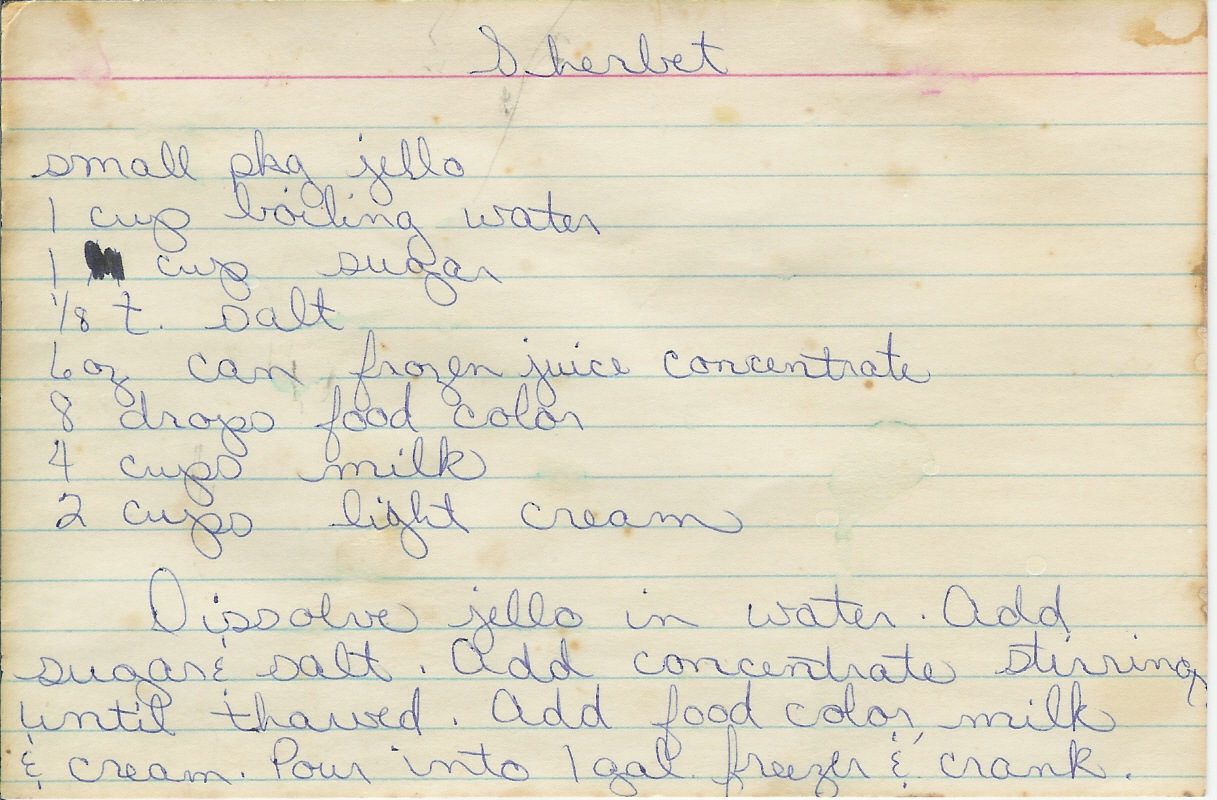 Sherbet
small pkg jello
1 cup boiling water
1 cup sugar
1/8 t. salt
6 oz can frozen juice concentrate
8 drops food color
4 cups milk
2 cups light cream
Dissolve jello in water. Add
sugar & salt. Add concentrate stirring
until thawed. Add food color, milk
& cream. Pour into 1 gal. freezer & crank.